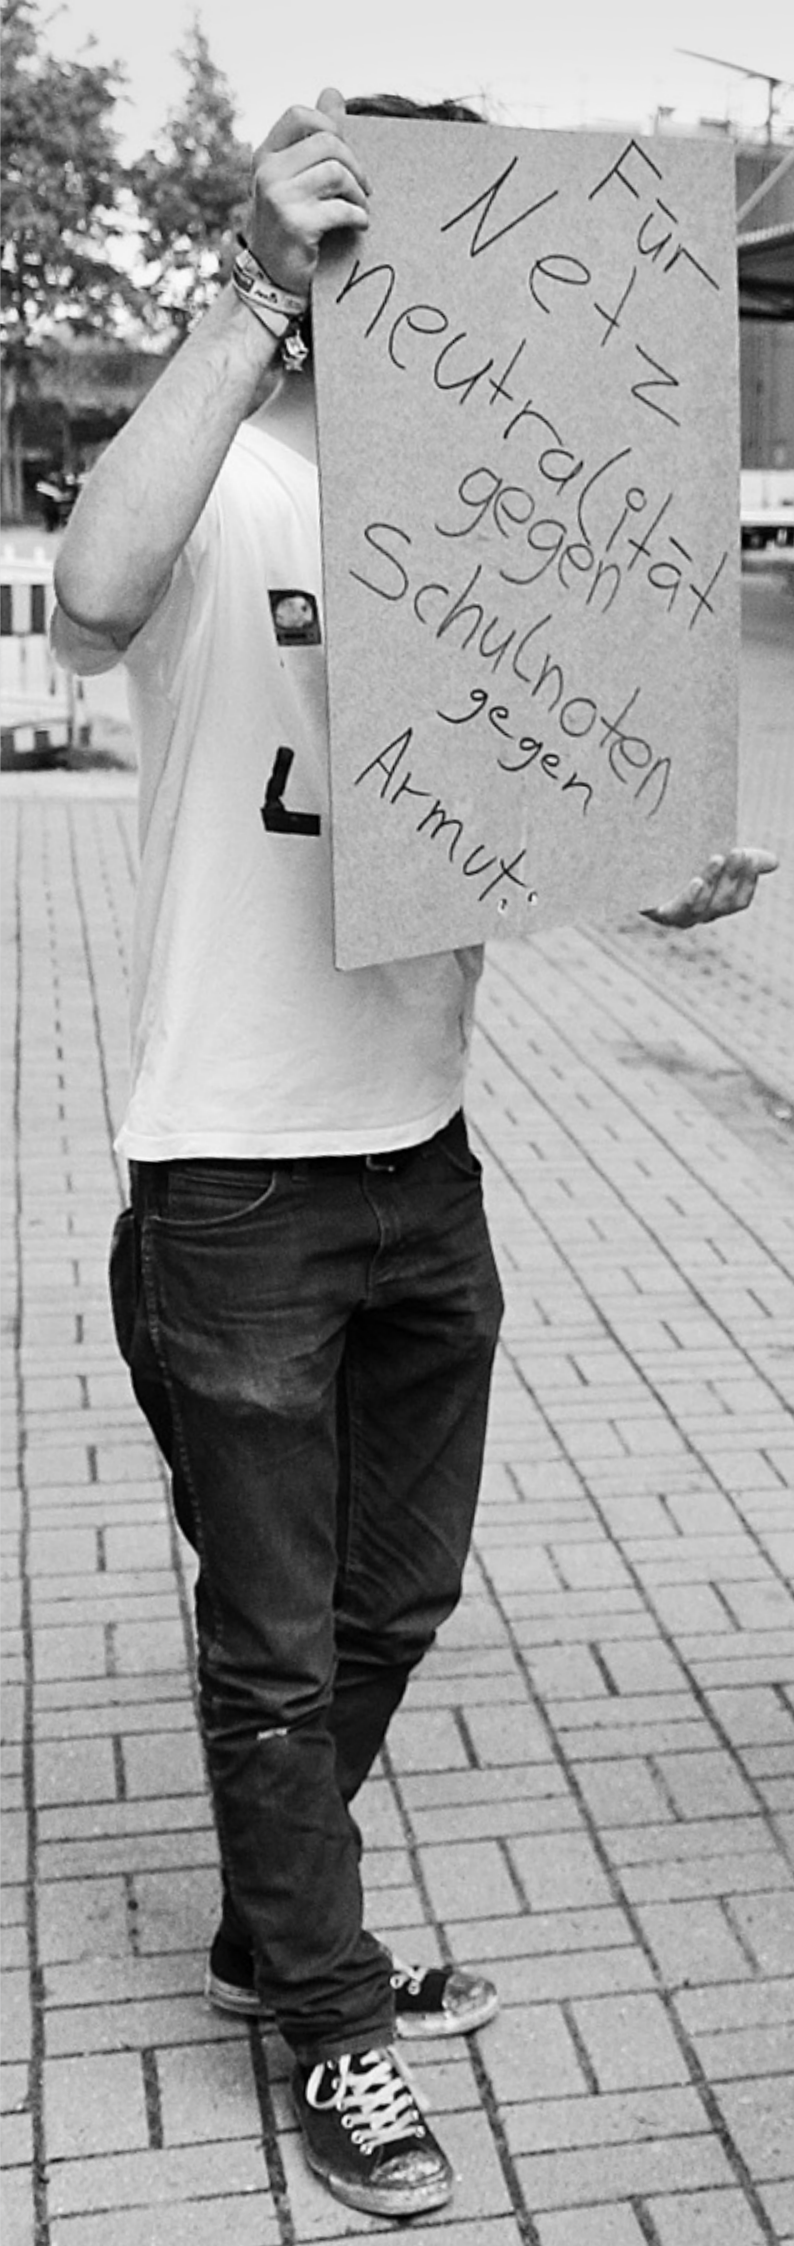 Für
Netz
neutralität
gegen
Schulnoten
gegen
Armut.